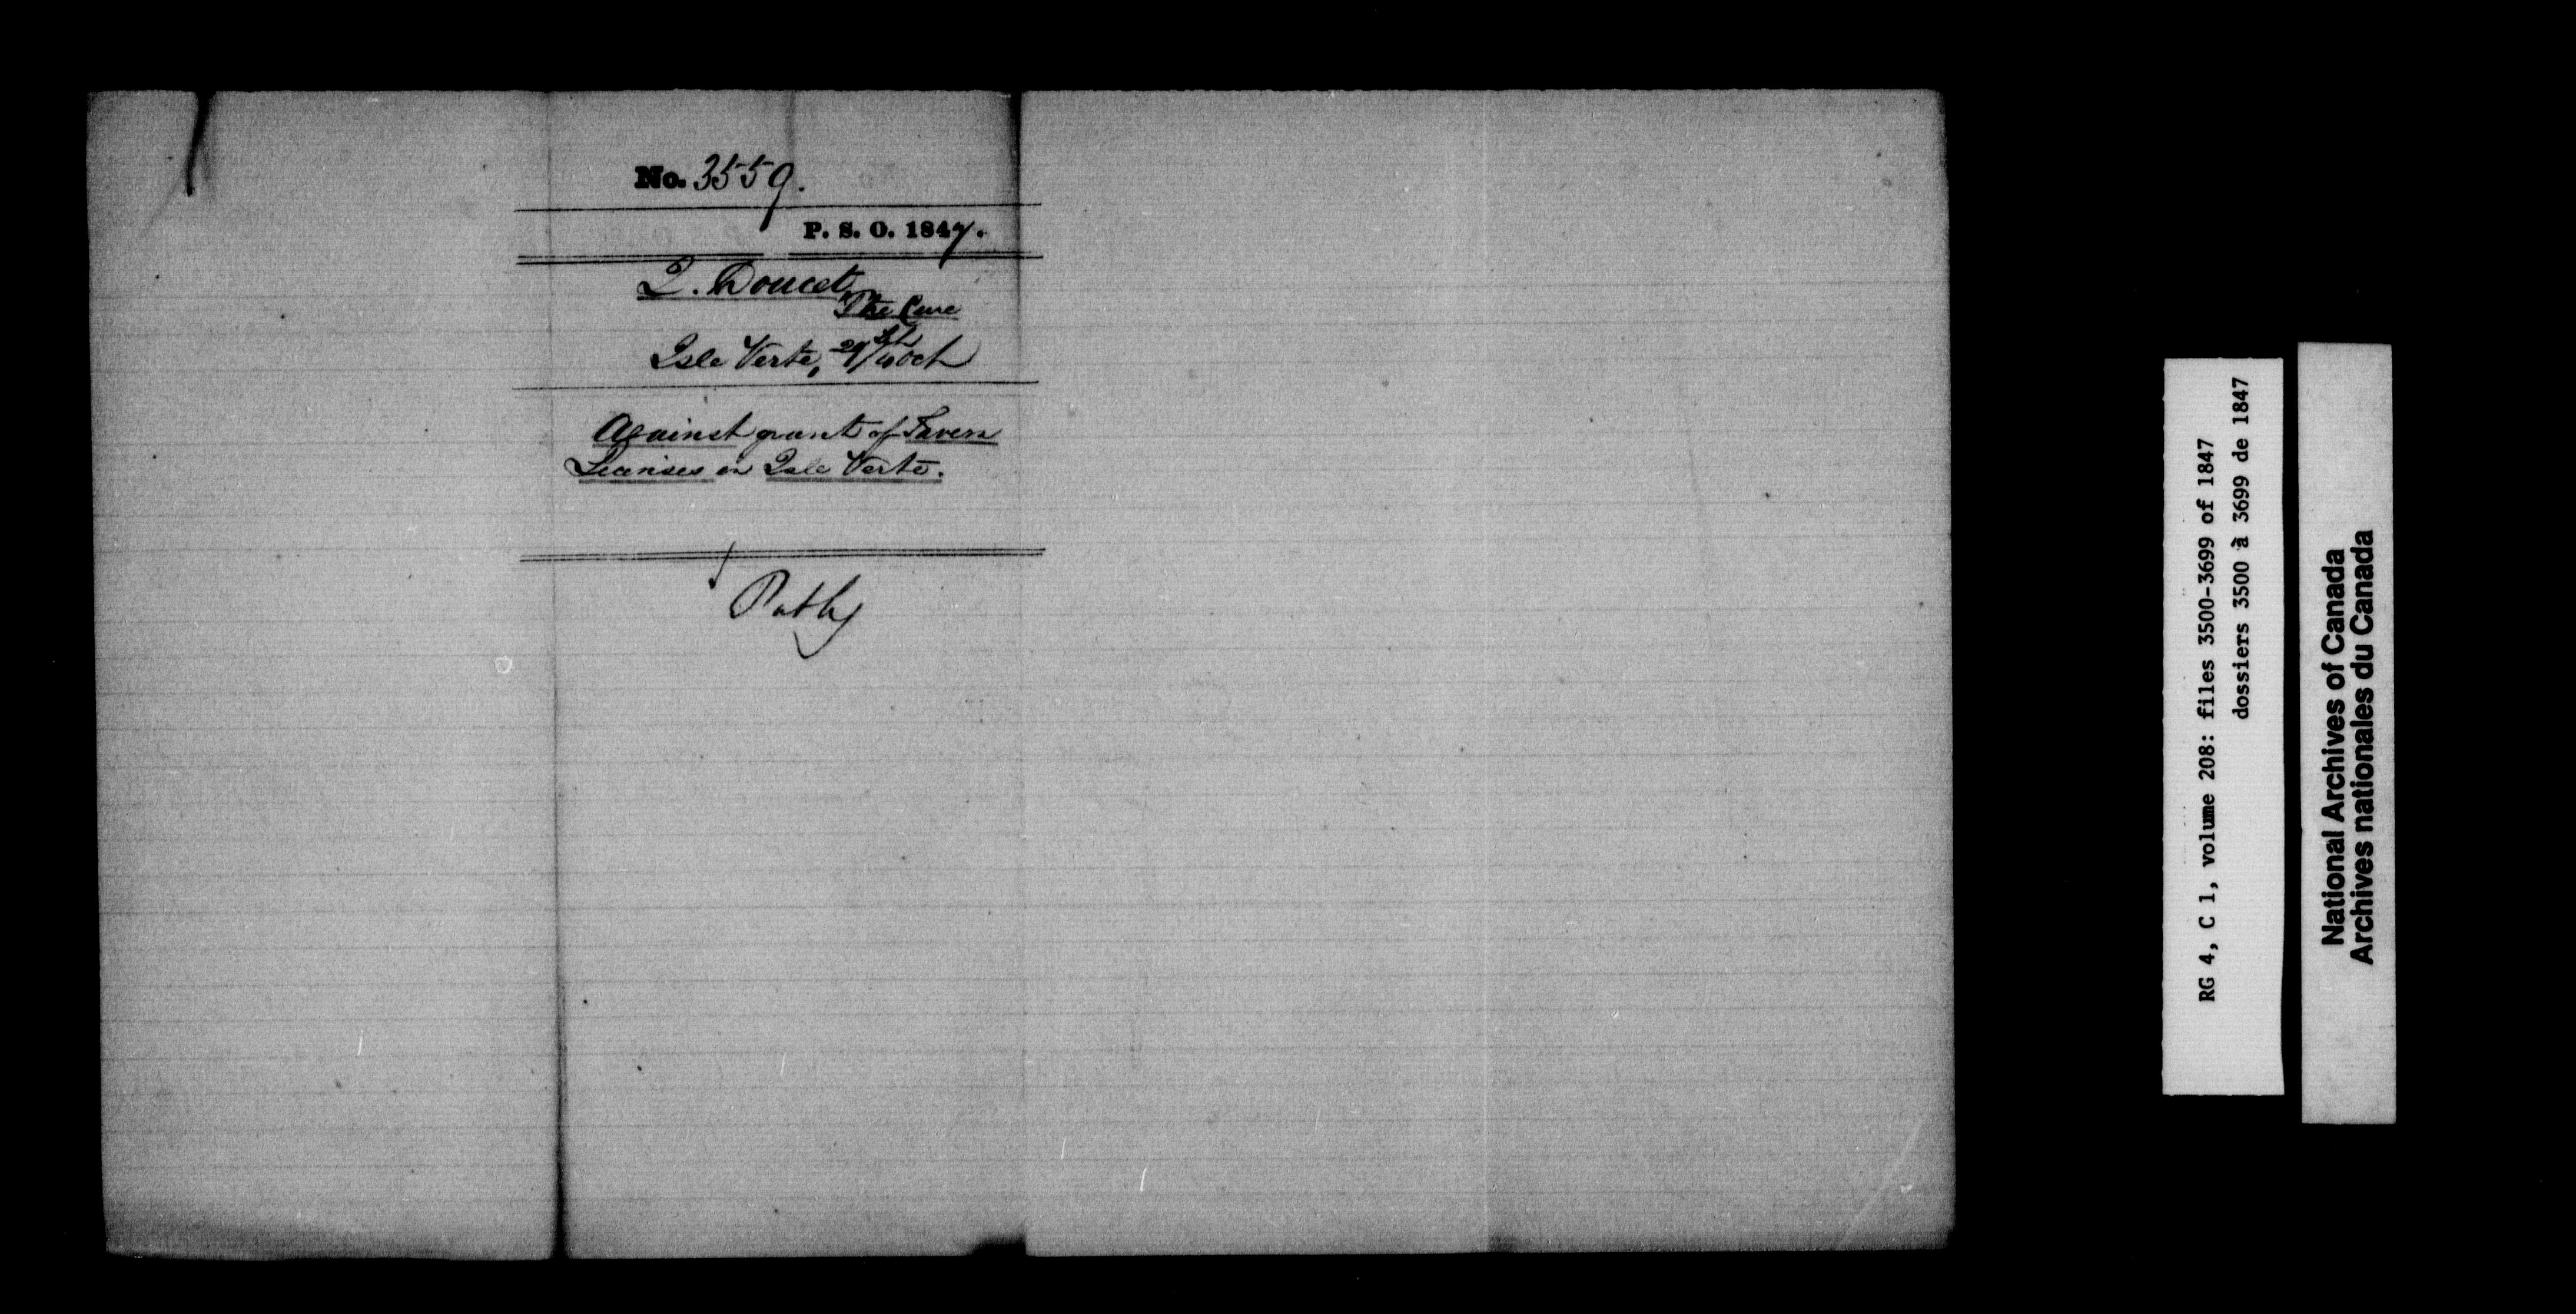 No. 3559.
P. S. O. 1847.
I. Doucet
The Cure
Isle Verte, Oct
Against grant of Tavern
Licenses in Isle Verte.
RG 4, C 1, volume 208: files 3500-3699 of 1847
dossiers 3500 à 3699 de 1847
National Archives of Canada
Archives nationales du Canada